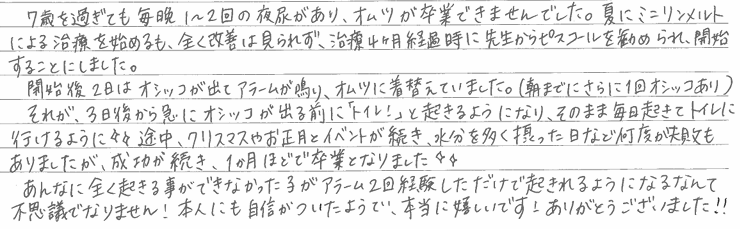 7歳を過ぎても毎晩1〜2回の夜尿があり、オムツが卒業できませんでした。夏にミニリンメルト
による治療を始めるも、全く改善は見られず、治療4ヶ月経過時に先生からピスコールを勧められ、開始
することにしました。
開始後2日はオシッコが出てアラームが鳴り、オムツに着替えていました。(朝までにさらに1回オシッコあり)
それが、3日後から急にオシッコが出る前に「トイレ!」と起きるようになり、そのまま毎日起きてトイレに
行けるように☆☆ 途中、クリスマスやお正月とイベントが続き、水分を多く摂った日など何度か失敗も
ありましたが、成功が続き、1か月ほどで卒業となりました☆☆
あんなに全く起きる事ができなかった子がアラーム2回経験しただけで起きれるようになるなんて
不思議でなりません! 本人にも自信がついたようで、本当に嬉しいです! ありがとうございました!!